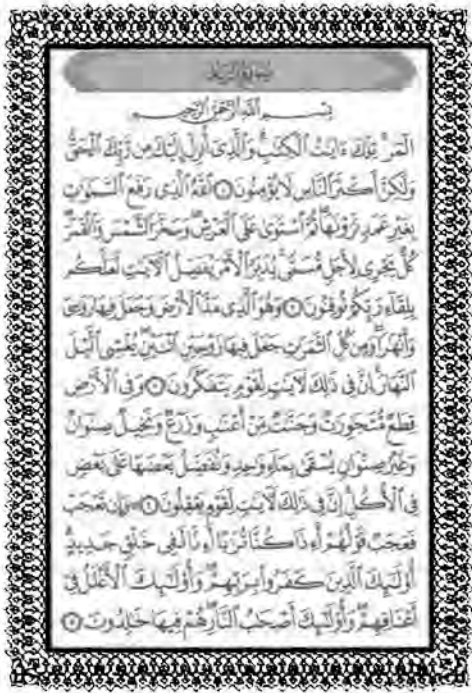 سورة الرعد
بسم الله الرحمن الرحيم
الٓمٓرۚ تِلۡكَ ءَايَٰتُ ٱلۡكِتَٰبِۗ وَٱلَّذِيٓ أُنزِلَ إِلَيۡكَ مِن رَّبِّكَ ٱلۡحَقُّ
وَلَٰكِنَّ أَكۡثَرَ ٱلنَّاسِ لَا يُؤۡمِنُونَ ۝١ ٱللَّهُ ٱلَّذِي رَفَعَ ٱلسَّمَٰوَٰتِ
بِغَيۡرِ عَمَدٖ تَرَوۡنَهَاۖ ثُمَّ ٱسۡتَوَىٰ عَلَى ٱلۡعَرۡشِۖ وَسَخَّرَ ٱلشَّمۡسَ وَٱلۡقَمَرَۖ
كُلّٞ يَجۡرِي لِأَجَلٖ مُّسَمّٗىۚ يُدَبِّرُ ٱلۡأَمۡرَ يُفَصِّلُ ٱلۡأٓيَٰتِ لَعَلَّكُم
بِلِقَآءِ رَبِّكُمۡ تُوقِنُونَ ۝٢ وَهُوَ ٱلَّذِي مَدَّ ٱلۡأَرۡضَ وَجَعَلَ فِيهَا رَوَٰسِيَ
وَأَنۡهَٰرٗاۖ وَمِن كُلِّ ٱلثَّمَرَٰتِ جَعَلَ فِيهَا زَوۡجَيۡنِ ٱثۡنَيۡنِۖ يُغۡشِي ٱلَّيۡلَ
ٱلنَّهَارَۚ إِنَّ فِي ذَٰلِكَ لَأٓيَٰتٖ لِّقَوۡمٖ يَتَفَكَّرُونَ ۝٣ وَفِي ٱلۡأَرۡضِ
قِطَعٞ مُّتَجَٰوِرَٰتٞ وَجَنَّٰتٞ مِّنۡ أَعۡنَٰبٖ وَزَرۡعٞ وَنَخِيلٞ صِنۡوَانٞ
وَغَيۡرُ صِنۡوَانٖ يُسۡقَىٰ بِمَآءٖ وَٰحِدٖ وَنُفَضِّلُ بَعۡضَهَا عَلَىٰ بَعۡضٖ
فِي ٱلۡأُكُلِۚ إِنَّ فِي ذَٰلِكَ لَأٓيَٰتٖ لِّقَوۡمٖ يَعۡقِلُونَ ۝٤ وَإِن تَعۡجَبۡ
فَعَجَبٞ قَوۡلُهُمۡ أَءِذَا كُنَّا تُرَٰبًا أَءِنَّا لَفِي خَلۡقٖ جَدِيدٍۗ
أُوْلَٰٓئِكَ ٱلَّذِينَ كَفَرُواْ بِرَبِّهِمۡۖ وَأُوْلَٰٓئِكَ ٱلۡأَغۡلَٰلُ فِيٓ
أَعۡنَاقِهِمۡۖ وَأُوْلَٰٓئِكَ أَصۡحَٰبُ ٱلنَّارِۖ هُمۡ فِيهَا خَٰلِدُونَ ۝٥